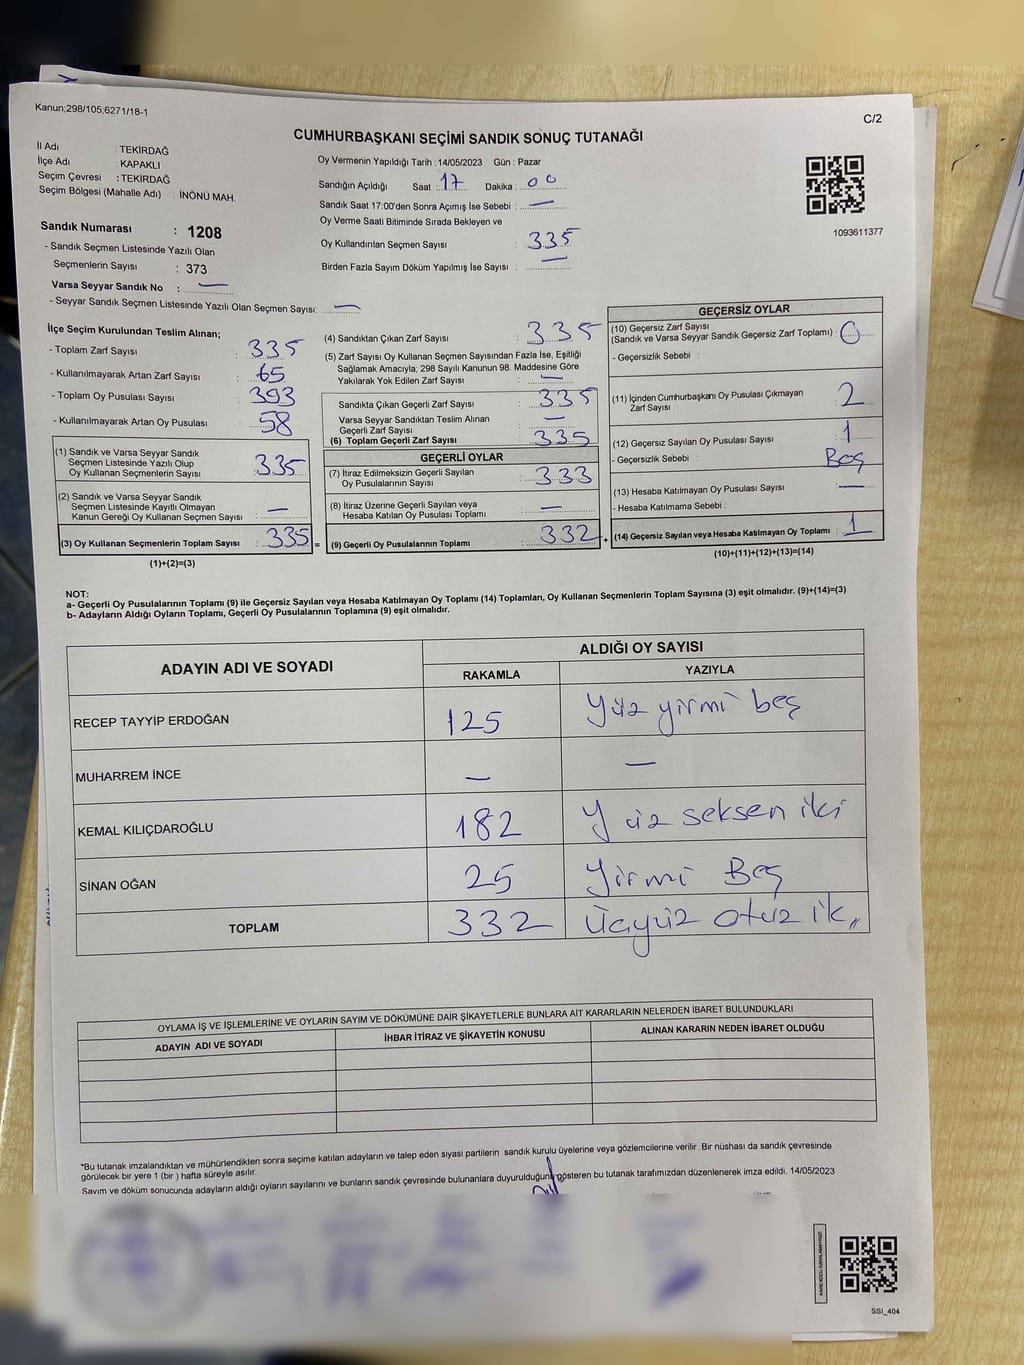 Kanun;298/105;6271/18-1
C/2
CUMHURBAŞKANI SEÇİMİ SANDIK SONUÇ TUTANAĞI
İl Adı : TEKİRDAĞ
İlçe Adı : KAPAKLI
Seçim Çevresi : TEKİRDAĞ
Seçim Bölgesi (Mahalle Adı) : İNÖNÜ MAH.
Oy Vermenin Yapıldığı Tarih : 14/05/2023 Gün : Pazar
Sandığın Açıldığı Saat : 17 Dakika : 00
Sandık Saat 17:00'den Sonra Açımış İse Sebebi : —
Oy Verme Saati Bitiminde Sırada Bekleyen ve
Oy Kullandırılan Seçmen Sayısı : 335
Birden Fazla Sayım Döküm Yapılmış İse Sayısı : —
1093611377
Sandık Numarası : 1208
- Sandık Seçmen Listesinde Yazılı Olan
Seçmenlerin Sayısı : 373
Varsa Seyyar Sandık No : —
- Seyyar Sandık Seçmen Listesinde Yazılı Olan Seçmen Sayısı: —
İlçe Seçim Kurulundan Teslim Alınan;
- Toplam Zarf Sayısı : 335
- Kullanılmayarak Artan Zarf Sayısı : 65
- Toplam Oy Pusulası Sayısı : 393
- Kullanılmayarak Artan Oy Pusulası : 58
(1) Sandık ve Varsa Seyyar Sandık
Seçmen Listesinde Yazılı Olup
Oy Kullanan Seçmenlerin Sayısı : 335
(2) Sandık ve Varsa Seyyar Sandık
Seçmen Listesinde Kayıtlı Olmayan
Kanun Gereği Oy Kullanan Seçmen Sayısı : —
(3) Oy Kullanan Seçmenlerin Toplam Sayısı : 335 =
(1)+(2)=(3)
(4) Sandıktan Çıkan Zarf Sayısı : 335
(5) Zarf Sayısı Oy Kullanan Seçmen Sayısından Fazla İse, Eşitliği
Sağlamak Amacıyla; 298 Sayılı Kanunun 98. Maddesine Göre
Yakılarak Yok Edilen Zarf Sayısı : —
Sandıkta Çıkan Geçerli Zarf Sayısı : 335
Varsa Seyyar Sandıktan Teslim Alınan
Geçerli Zarf Sayısı : —
(6) Toplam Geçerli Zarf Sayısı : 335
GEÇERLİ OYLAR
(7) İtiraz Edilmeksizin Geçerli Sayılan
Oy Pusulalarının Sayısı : 333
(8) İtiraz Üzerine Geçerli Sayılan veya
Hesaba Katılan Oy Pusulası Toplamı : —
(9) Geçerli Oy Pusulalarının Toplamı : 332 +
GEÇERSİZ OYLAR
(10) Geçersiz Zarf Sayısı
(Sandık ve Varsa Seyyar Sandık Geçersiz Zarf Toplamı) : 0
- Geçersizlik Sebebi :
(11) İçinden Cumhurbaşkanı Oy Pusulası Çıkmayan
Zarf Sayısı : 2
(12) Geçersiz Sayılan Oy Pusulası Sayısı : 1
- Geçersizlik Sebebi : Boş
(13) Hesaba Katılmayan Oy Pusulası Sayısı : —
- Hesaba Katılmama Sebebi :
(14) Geçersiz Sayılan veya Hesaba Katılmayan Oy Toplamı : 1
(10)+(11)+(12)+(13)=(14)
NOT:
a- Geçerli Oy Pusulalarının Toplamı (9) ile Geçersiz Sayılan veya Hesaba Katılmayan Oy Toplamı (14) Toplamları, Oy Kullanan Seçmenlerin Toplam Sayısına (3) eşit olmalıdır. (9)+(14)=(3)
b- Adayların Aldığı Oyların Toplamı, Geçerli Oy Pusulalarının Toplamına (9) eşit olmalıdır.
ADAYIN ADI VE SOYADI ALDIĞI OY SAYISI
RAKAMLA YAZIYLA
RECEP TAYYİP ERDOĞAN 125 Yüz yirmi beş
MUHARREM İNCE — —
KEMAL KILIÇDAROĞLU 182 Yüz seksen iki
SİNAN OĞAN 25 Yirmi Beş
TOPLAM 332 Üçyüz otuz ik,,
OYLAMA İŞ VE İŞLEMLERİNE VE OYLARIN SAYIM VE DÖKÜMÜNE DAİR ŞİKAYETLERLE BUNLARA AİT KARARLARIN NELERDEN İBARET BULUNDUKLARI
ADAYIN ADI VE SOYADI İHBAR İTİRAZ VE ŞİKAYETİN KONUSU ALINAN KARARIN NEDEN İBARET OLDUĞU
*Bu tutanak imzalandıktan ve mühürlendikten sonra seçime katılan adayların ve talep eden siyasi partilerin sandık kurulu üyelerine veya gözlemcilerine verilir. Bir nüshası da sandık çevresinde
görülecek bir yere 1 (bir ) hafta süreyle asılır.
Sayım ve döküm sonucunda adayların aldığı oyların sayılarını ve bunların sandık çevresinde bulunanlara duyurulduğunu gösteren bu tutanak tarafımızdan düzenlenerek imza edildi. 14/05/2023
SSI_404